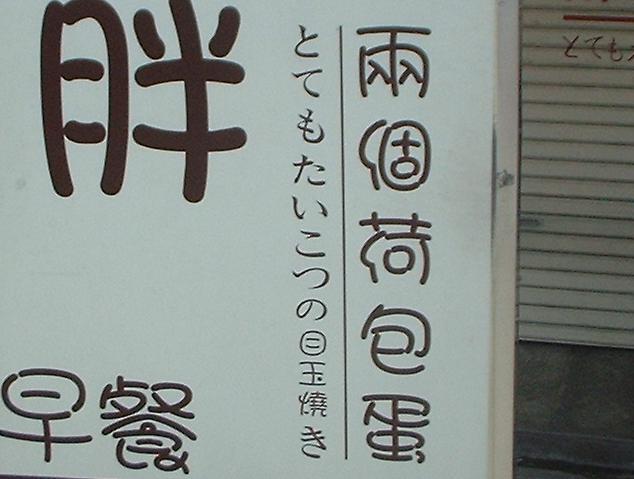 兩個荷包蛋
とてもたいこつの日玉燒き
胖
早餐
とても